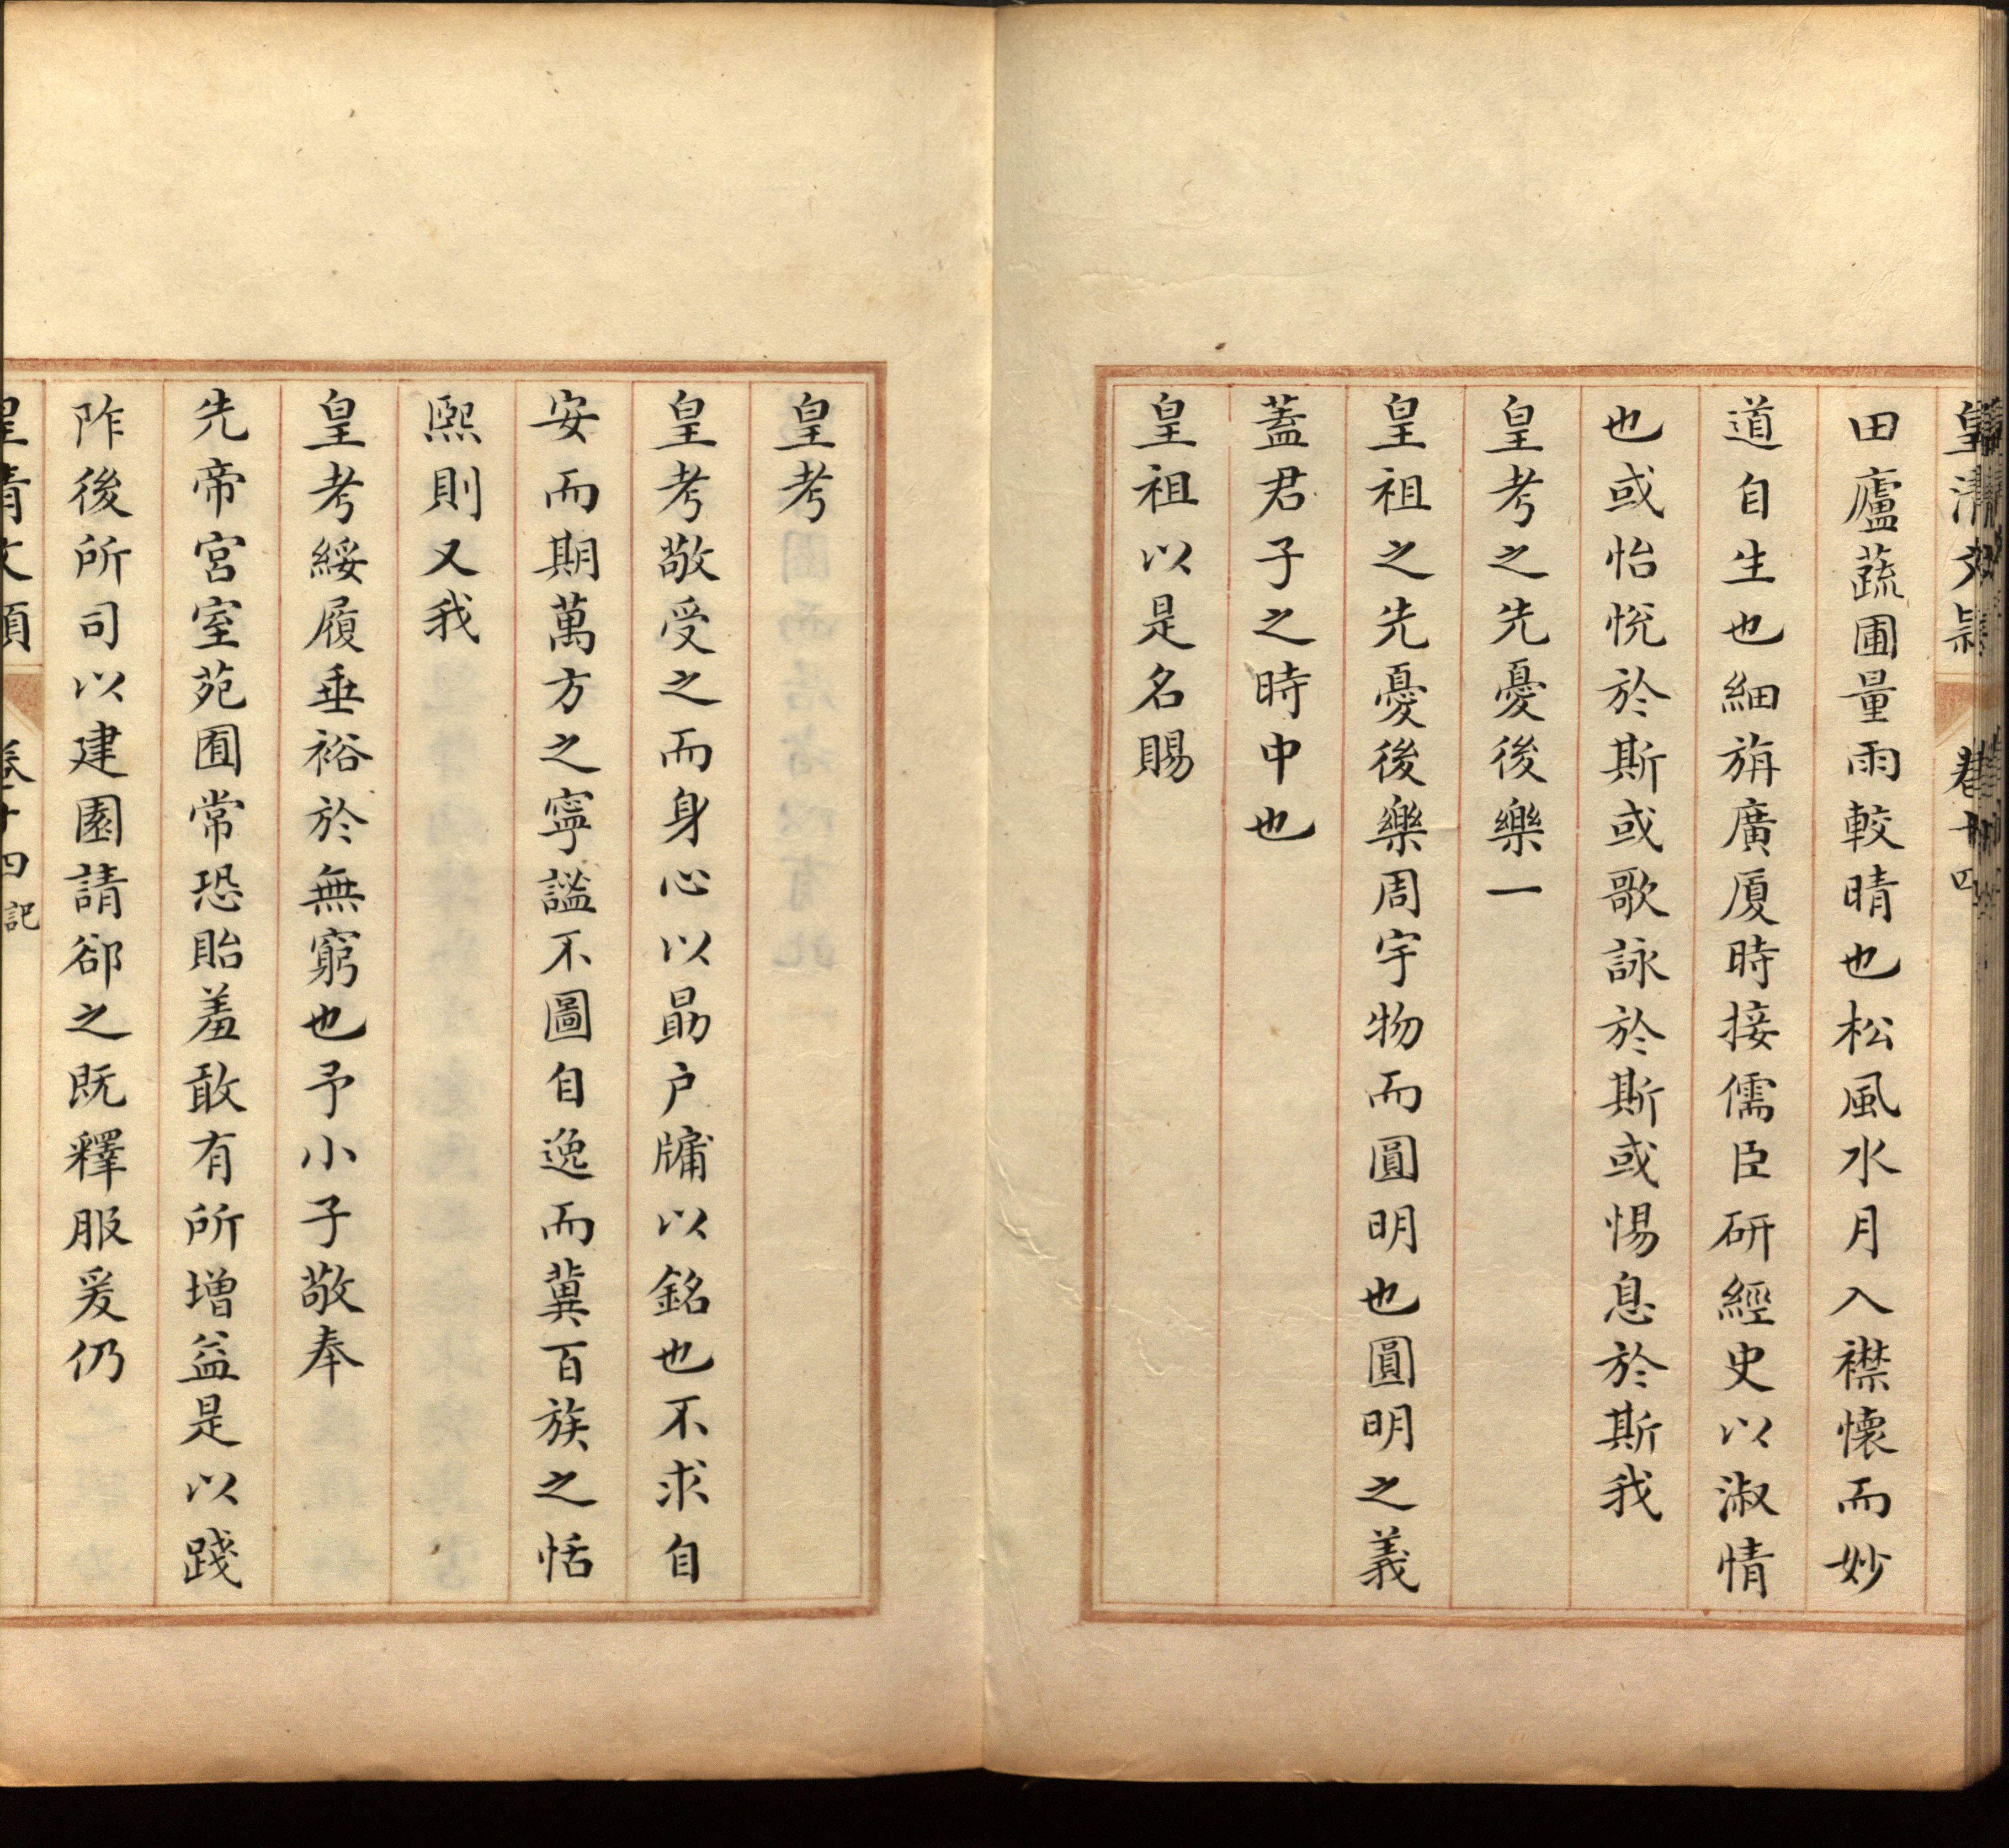 皇清文穎 卷十四
田廬蔬圃量雨較晴也松風水月入襟懷而妙
道自生也細旃廣厦時接儒臣研經史以淑情
也或怡悅於斯或歌詠於斯或惕息於斯我
皇考之先憂後樂一
皇祖之先憂後樂周宇物而圓明也圓明之義
蓋君子之時中也
皇祖以是名賜
皇考
皇考敬受之而身心以勗户牖以銘也不求自
安而期萬方之寧謐不圖自逸而冀百族之恬
熙則又我
皇考綏履垂裕於無窮也予小子敬奉
先帝宮室苑囿常恐貽羞敢有所增益是以踐
阼後所司以建園請卻之既釋服爰仍
皇清文穎 卷十四 記